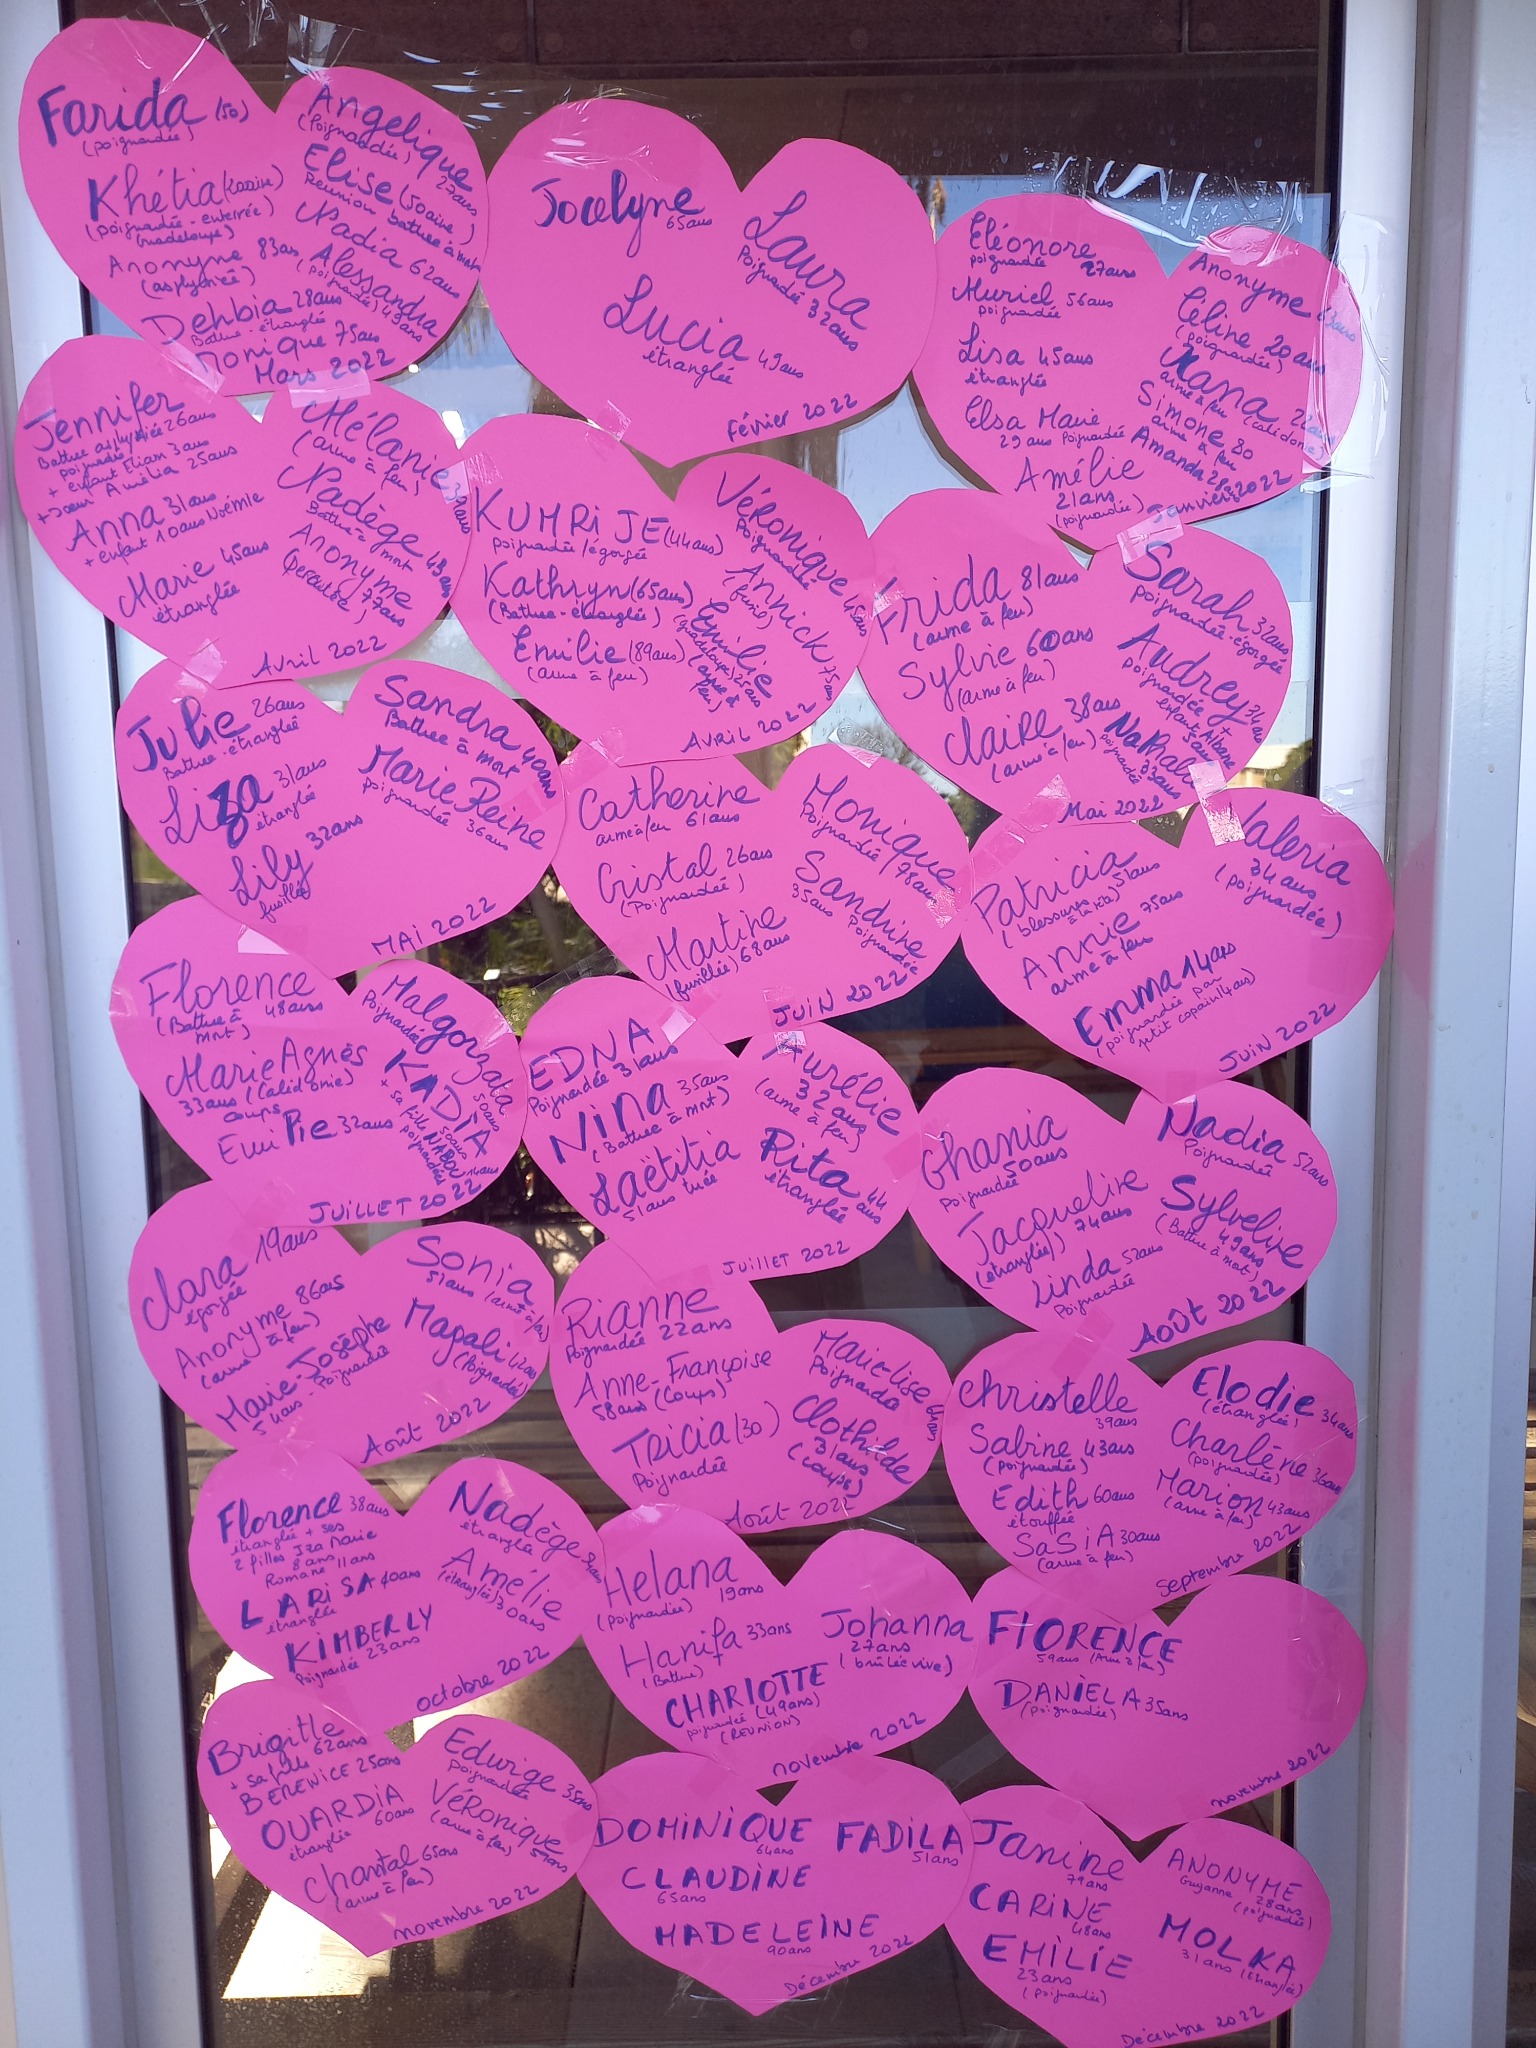 Farida (50)
(poignardée)
Khétia (20aine)
(poignardée-enterrée)
Guadeloupe)
Anonyme 83ans
(asphyxiée)
Dehbia 28ans
Battue-étranglée
Monique 75ans
Angelique
(Poignardée) 27ans
Elise (50aine)
Réunion battue à mort
Nadia 62ans
Alessandra
(poignardée) 49ans
Mars 2022
Jocelyne
65ans
Laura
Poignardée 32ans
Lucia 49ans
étranglée
Février 2022
Eléonore
poignardée 27ans
Muriel 56ans
poignardée
Lisa 45ans
étranglée
Elsa Marie
29 ans Poignardée
Amélie
21ans
(poignardée)
Anonyme
Céline 20ans
(poignardée)
arme à feu
(Calédonie)
Simone 80
arme à feu
Amanda 28ans
Janvier 2022
Jennifer
Battue asphyxiée 26ans
poignardée
+ enfant Elian 3ans
+ soeur Amélia 25ans
Anna 31ans
+ enfant 10ans Noémie
Marie 45ans
étranglée
Mélanie 39ans
(arme à feu)
Nadège 43ans
Battue à mort
Anonyme
77ans
Avril 2022
KUMRIJE (44ans)
poignardée/égorgée
Kathryn (65ans)
(Battue-étranglée)
Emilie (89ans)
(arme à feu)
Véronique 45ans
Poignardée
Annick 75ans
(fusil)
Emilie
(guadeloupe) 25ans
(arme à feu)
AVRIL 2022
Frida 81ans
(arme à feu)
Sylvie 60ans
(arme à feu)
Claire 38ans
(arme à feu)
Sarah 32ans
poignardée-égorgée
Audrey 34ans
poignardée +
enfant Albane
5ans
Nathalie
poignardée 33ans
Mai 2022
Julie 26ans
Battue-étranglée
Liza 31ans
étranglée
Lily 32ans
fusillée
Sandra 40ans
Battue à mort
Marie Reine
poignardée 36ans
MAI 2022
Catherine
arme à feu 61ans
Cristal 26ans
(Poignardée)
Martine
(fusillée) 68ans
Monique
Poignardée 78ans
Sandrine
35ans Poignardée
JUIN 2022
Patricia
(blessures à la tête) 51ans
Annie 75ans
arme à feu
Emma 14ans
(poignardée par
petit copain 14ans)
Valeria
34ans
(poignardée)
JUIN 2022
Florence
(Battue à 48ans
mort)
Marie Agnès
33ans (Calédonie)
coups
Emi Pie 32ans
Malgorzata
Poignardée 50ans
KADIA
50ans
+ sa fille NABOU 14ans
poignardées
JUILLET 2022
EDNA
Poignardée 31ans
NINA 35ans
(Battue à mort)
Laëtitia
51ans tuée
Aurélie
32ans
(arme à feu)
Rita 44ans
étranglée
Juillet 2022
Ghania
50ans
poignardée
Jacqueline
(étranglée) 74ans
Linda 52ans
Poignardée
Nadia
Poignardée 52ans
Sylveline
49ans
(Battue à mort)
AOÛT 2022
Clara 19ans
égorgée
Anonyme 86ans
(arme à feu)
Marie-Josèphe
54ans - Poignardée
Sonia
51ans (arme à feu)
Magali
(Poignardée)
Août 2022
Rianne
Poignardée 22ans
Anne-Françoise
58ans (Coups)
TRICIA (30)
Poignardée
Marie-lise
Poignarda
Clothilde
31ans
(coups)
Août 2022
Christelle
39ans
Sabine 43ans
(poignardée)
Edith 60ans
étouffée
SaSiA 30ans
(arme à feu)
Elodie
(étranglée) 34ans
Charlène
(poignardée) 36ans
Marion 43ans
(arme à feu)
Septembre 2022
Florence 38ans
étranglée + ses
2 filles Iza Marie
8ans 11ans
Romane
LARISA 40ans
étranglée
KIMBERLY
Poignardée 23ans
Nadège
étranglée
Amélie
(étranglée) 30ans
octobre 2022
Helana
(poignardée) 19ans
Hanifa 33ans
(Battue)
CHARLOTTE
poignardée (49ans)
(REUNION)
Johanna
27ans
(brûlée vive)
novembre 2022
FlORENCE
59ans (Arme à feu)
DANIELA 35ans
(poignardée)
novembre 2022
Brigitte
62ans
+ sa fille
BERENICE 25ans
OUARDIA
étranglée 60ans
Chantal 65ans
(arme à feu)
Edwige 35ans
poignardée
VéRonique
(arme à feu)
novembre 2022
DOMINIQUE
64ans
CLAUDINE
65ans
MADELEINE
90ans
FADILA
51ans
Décembre 2022
Janine
79ans
CARINE
48ans
EMILIE
23ans
(poignardée)
ANONYME
Guyanne 28ans
(poignardée)
MOLKA
31ans (Etranglée)
Décembre 2022